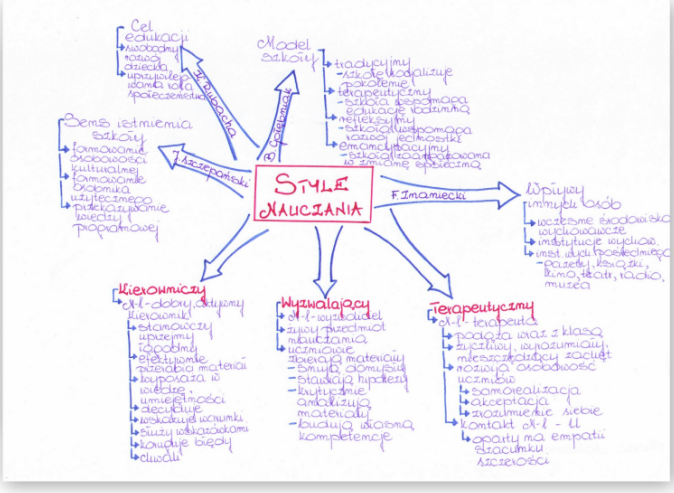 Cel
edukacji
swobodny
rozwój
dziecka,
uprzywilejo-
wana rola
społeczeństwa
K. Dubacha
Model
szkoły
B. Gołębniak
tradycyjny
- szkoła socjalizuje
pokolenie
terapeutyczny
- szkoła wspomaga
edukację rodzinną
refleksyjny
- szkoła wspomaga
rozwój jednostki
emancypacyjny
- szkoła zaangażowana
w zmianę społeczną
Sens istnienia
szkoły
formowanie
osobowości
kulturalnej
formowanie
osobnika
użytecznego
przekazywanie
wiedzy
programowej
J. Szczepański
STYLE
NAUCZANIA
F. Znaniecki
Wpływy
innych osób
wczesne środowisko
wychowawcze
instytucje wychow.
inst. wych. pośredniego
- gazety, książki,
kino, teatr, radio,
muzea
Kierowniczy
N-l - dobry, aktywny
kierownik
stanowczy
uprzejmy
łagodny
efektywnie
przerabia materiał
wyposaża w
wiedzę,
umiejętności
decyduje
wskazuje warunki
służy wskazówkami
koryguje błędy
chwali
Wyzwalający
N-l - wyzwoliciel
żywy przedmiot
nauczania
uczniowie
zbierają materiały
- snują domysły
- stawiają hipotezy
- krytycznie
analizują
materiały
- budują własną
kompetencje
Terapeutyczny
N-l - terapeuta
podąża wraz z klasą
życzliwy, wyrozumiały,
nieszczędzący zachęt
rozwija osobowość
uczniów
samorealizacja
akceptacja
zrozumienie siebie
kontakt N-l - U
oparty na empatii
szacunku
szczerości